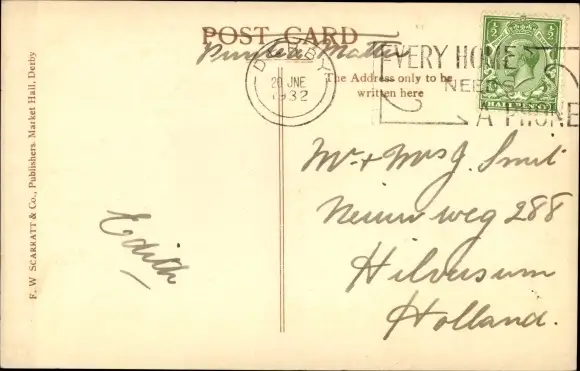 POST CARD
Printed Matter
DERBY
20 JNE
1932
EVERY HOME
NEEDS
A PHONE
½ ½
HALFPENNY
The Address only to be
written here
F. W. SCARRATT & Co., Publishers. Market Hall, Derby
Edith
Mr + Mrs J. Smit
Nieuw weg 288
Hilversum
Holland.